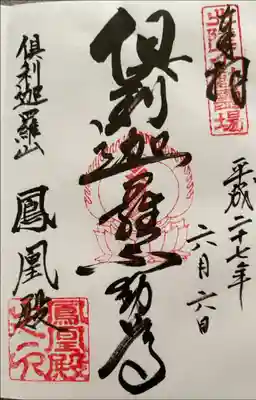 奉拝
平成二十七年
六月六日
倶利迦羅不動尊
倶利迦羅山
鳳凰殿
鳳凰殿